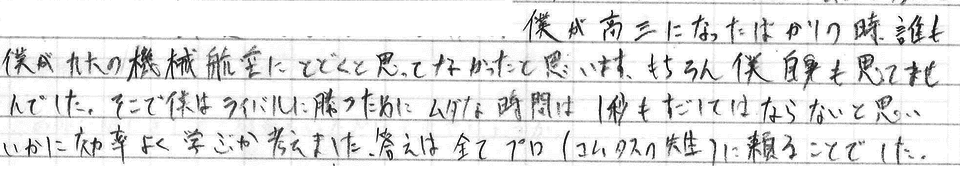 僕が高三になったばかりの時、誰も
僕が九大の機械航空にとどくと思ってなかったと思います。もちろん僕自身も思ってませ
んでした。そこで僕はライバルに勝つためにムダな時間は1秒もすごしてはならないと思い
いかに効率よく学ぶか考えました。答えは全てプロ(コムタスの先生)に頼ることでした。